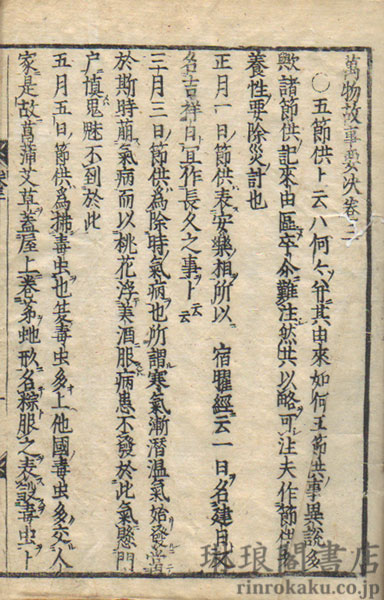 萬物故事要决卷三
○五節供ト云ハ何々ソ并其由來如何王節供事異説多
歟諸節供記來由區卒尒難注然𪜈以略可注夫作節供
養性要除災討也
正月一日節供表安樂相所以宿曜經云一日名建日
名吉祥日宜作長久之事ト云云
三月三日節供爲除時氣病也所謂寒氣漸潛温氣始發
於斯時崩氣病而以桃花浮美酒服病患不發於此氣懸門
戸慎鬼魅不到於此
五月五日節供爲拂毒虫也 毒虫多上他國毒虫多 人
家是故菖蒲艾草蓋屋上卷茅虵形名粽服之表殺毒虫ト
琳琅閣書店
rinrokaku.co.jp